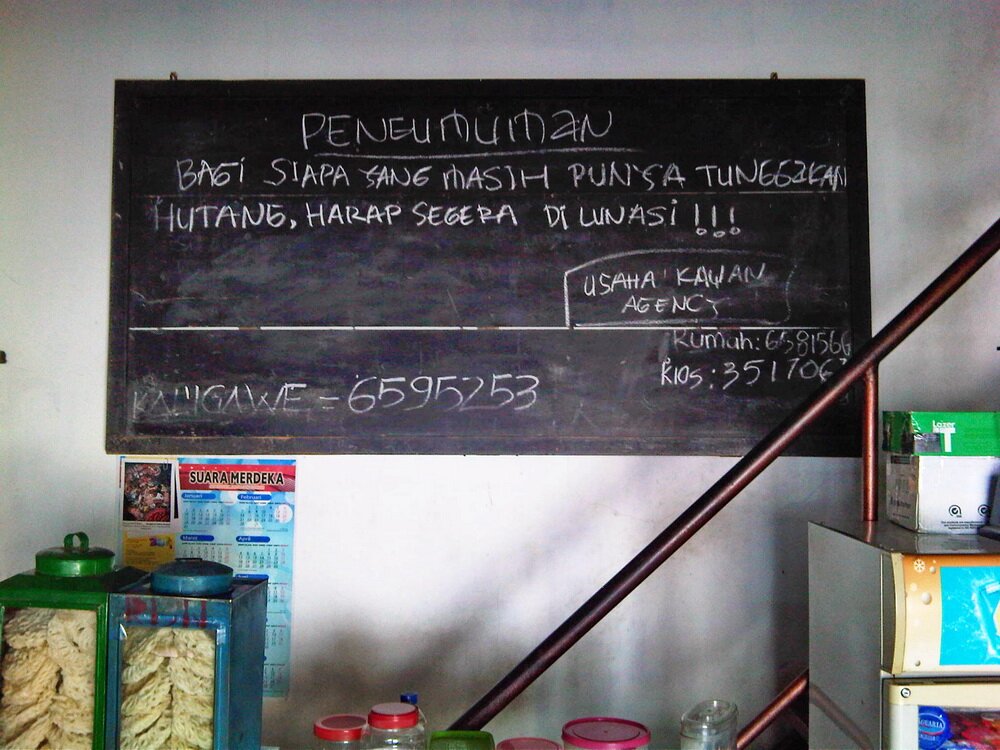 PENGUMUMAN
BAGI SIAPA YANG MASIH PUNYA TUNGGAKAN
HUTANG, HARAP SEGERA DI LUNASI !!!
USAHA KAWAN
AGENCY
Rumah: 6581566
Kios: 3517067
KALIGAWE = 6595253
SUARA MERDEKA
Januari
Februari
Maret
April
Lazer
T